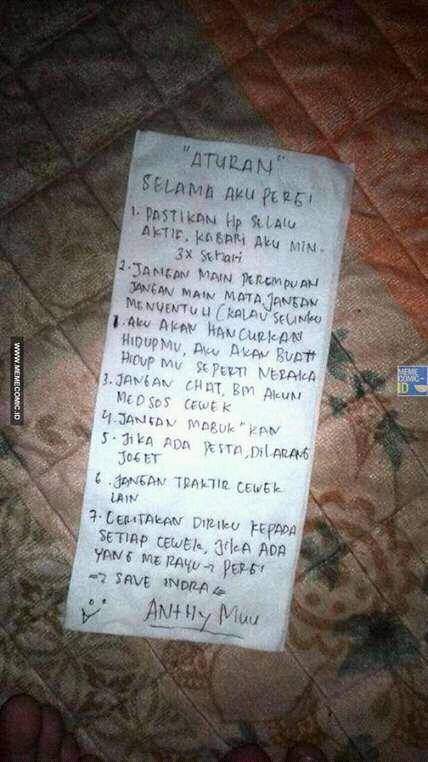 "ATURAN"
SELAMA AKU PERGI
1. PASTIKAN HP SELALU
AKTIF, KABARI AKU MIN-
3x SEHARI
2. JANGAN MAIN PEREMPUAN
JANGAN MAIN MATA, JANGAN
MENYENTUH (KALAU SELINKU
AKU AKAN HANCURKAN
HIDUPMU, AKU AKAN BUAT
HIDUP MU SEPERTI NERAKA
3. JANGAN CHAT, BM AKUN
MEDSOS CEWEK
4. JANGAN MABUK"KAN
5. JIKA ADA PESTA, DILARANG
JOGET
6. JANGAN TRAKTIR CEWEK
LAIN
7. CERITAKAN DIRIKU KEPADA
SETIAP CEWEK, JIKA ADA
YANG MERAYU → PERGI
SAVE INDRA
ANTHY MUU
WWW.MEMECOMIC.ID
MEME
COMIC-
ID